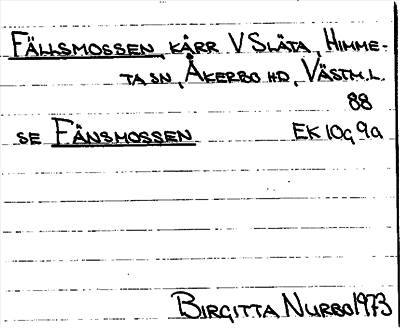 FÄLLSMOSSEN, KÄRR V SLÄTA, HIMME-
TA SN, ÅKERBO HD, VÄSTM.L.
88
SE FÄNSMOSSEN EK 10g 9a
BIRGITTA NURBO 1973